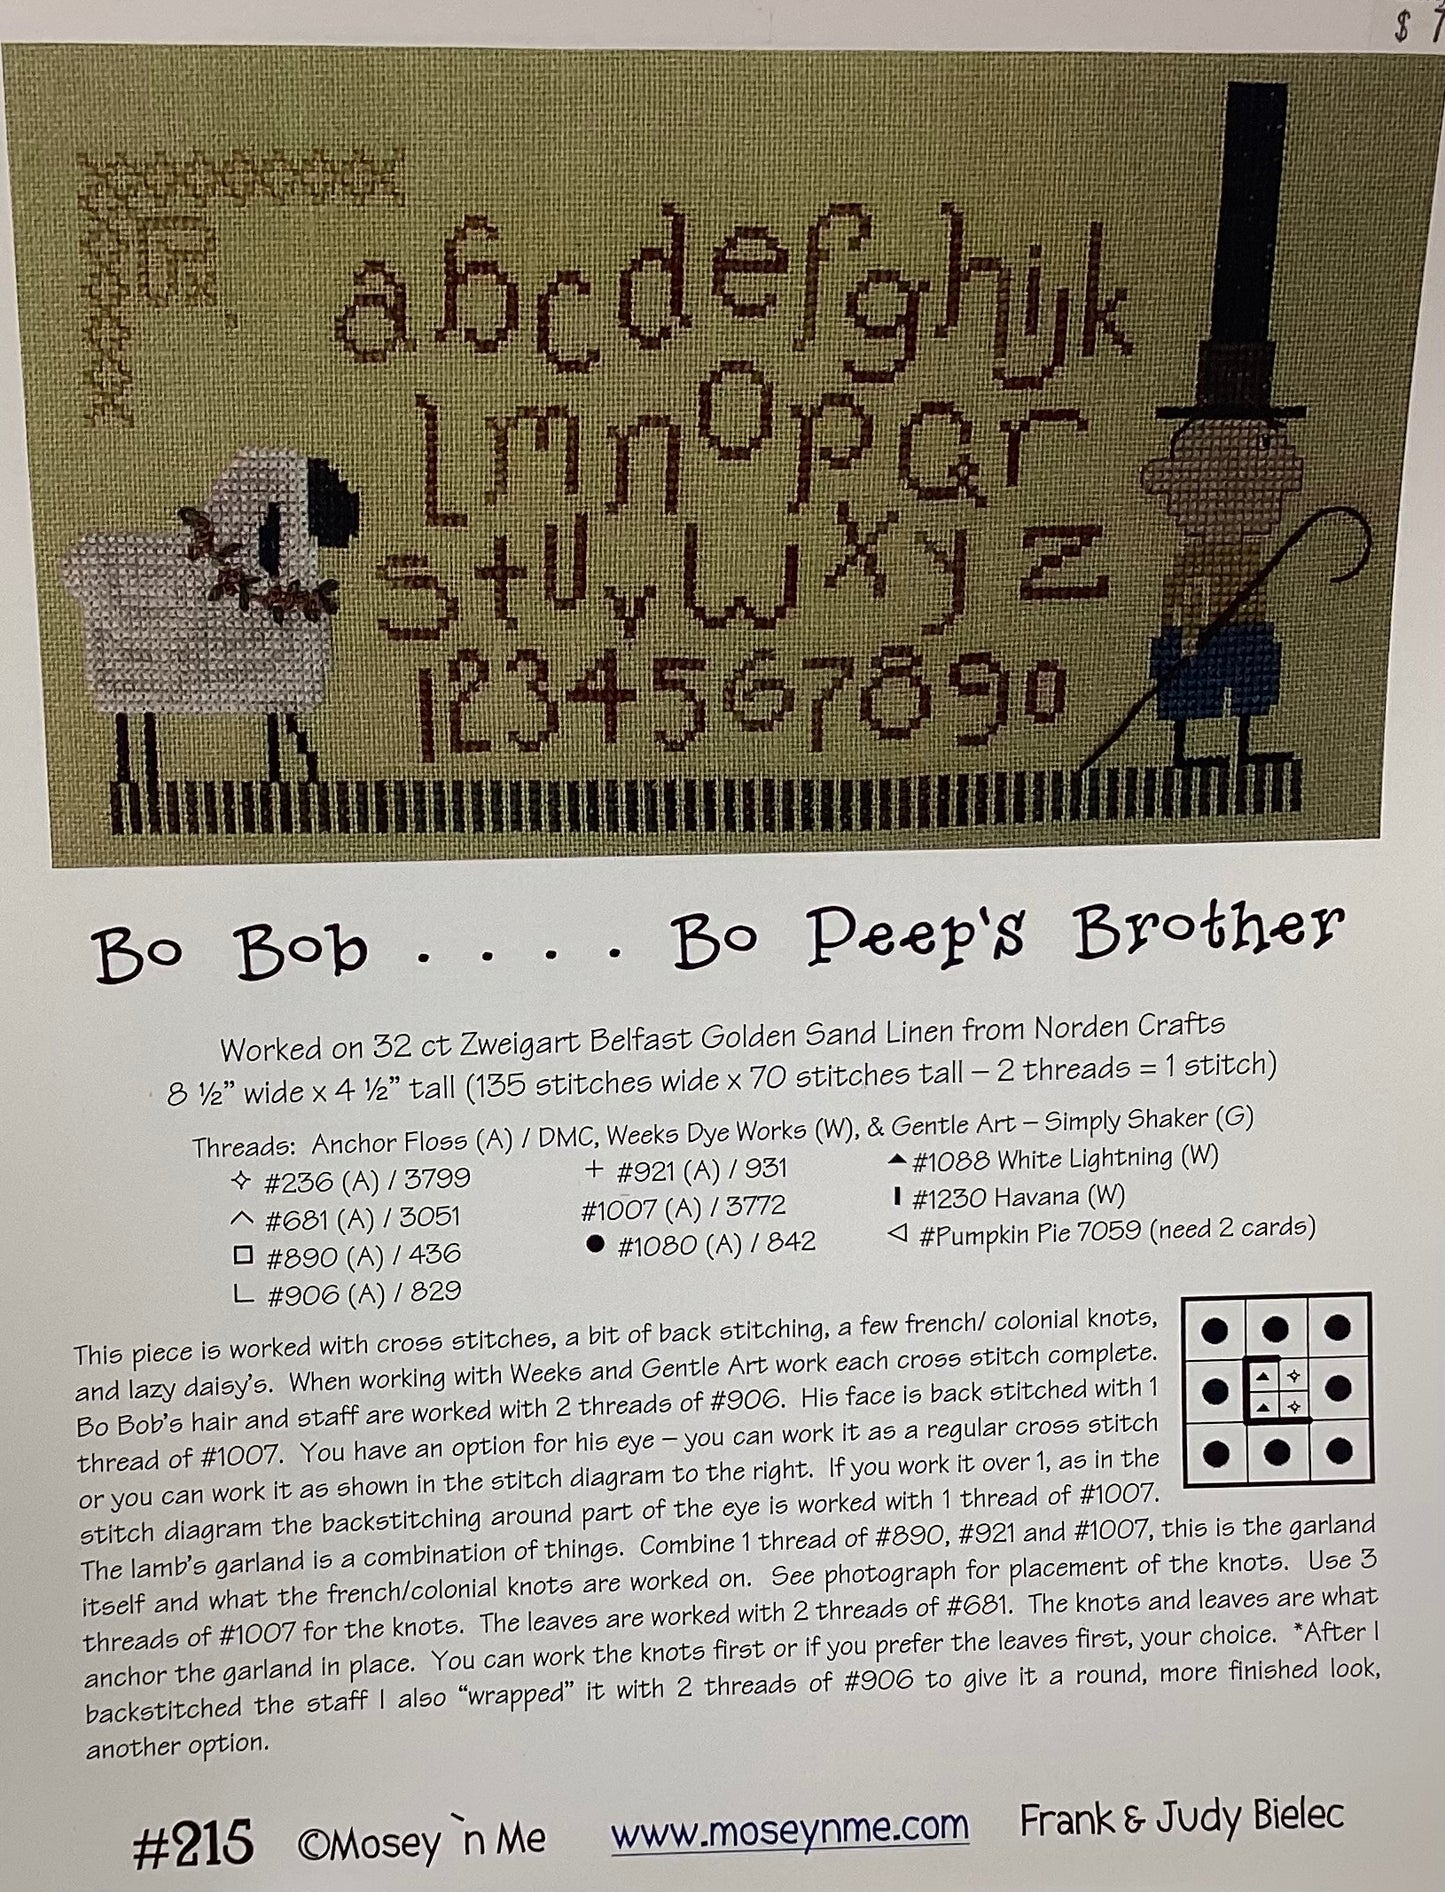 $ 7
abcdefghijk
lmnopqr
stuvwxyz
1234567890
Bo Bob . . . . Bo Peep's Brother
Worked on 32 ct Zweigart Belfast Golden Sand Linen from Norden Crafts
8 ½” wide x 4 ½” tall (135 stitches wide x 70 stitches tall – 2 threads = 1 stitch)
Threads: Anchor Floss (A) / DMC, Weeks Dye Works (W), & Gentle Art – Simply Shaker (G)
#236 (A) / 3799
#681 (A) / 3051
#890 (A) / 436
#906 (A) / 829
#921 (A) / 931
#1007 (A) / 3772
#1080 (A) / 842
#1088 White Lightning (W)
#1230 Havana (W)
#Pumpkin Pie 7059 (need 2 cards)
This piece is worked with cross stitches, a bit of back stitching, a few french/ colonial knots,
and lazy daisy's. When working with Weeks and Gentle Art work each cross stitch complete.
Bo Bob's hair and staff are worked with 2 threads of #906. His face is back stitched with 1
thread of #1007. You have an option for his eye – you can work it as a regular cross stitch
or you can work it as shown in the stitch diagram to the right. If you work it over 1, as in the
stitch diagram the backstitching around part of the eye is worked with 1 thread of #1007.
The lamb's garland is a combination of things. Combine 1 thread of #890, #921 and #1007, this is the garland
itself and what the french/colonial knots are worked on. See photograph for placement of the knots. Use 3
threads of #1007 for the knots. The leaves are worked with 2 threads of #681. The knots and leaves are what
anchor the garland in place. You can work the knots first or if you prefer the leaves first, your choice. *After I
backstitched the staff I also “wrapped” it with 2 threads of #906 to give it a round, more finished look,
another option.
#215 ©Mosey `n Me www.moseynme.com Frank & Judy Bielec